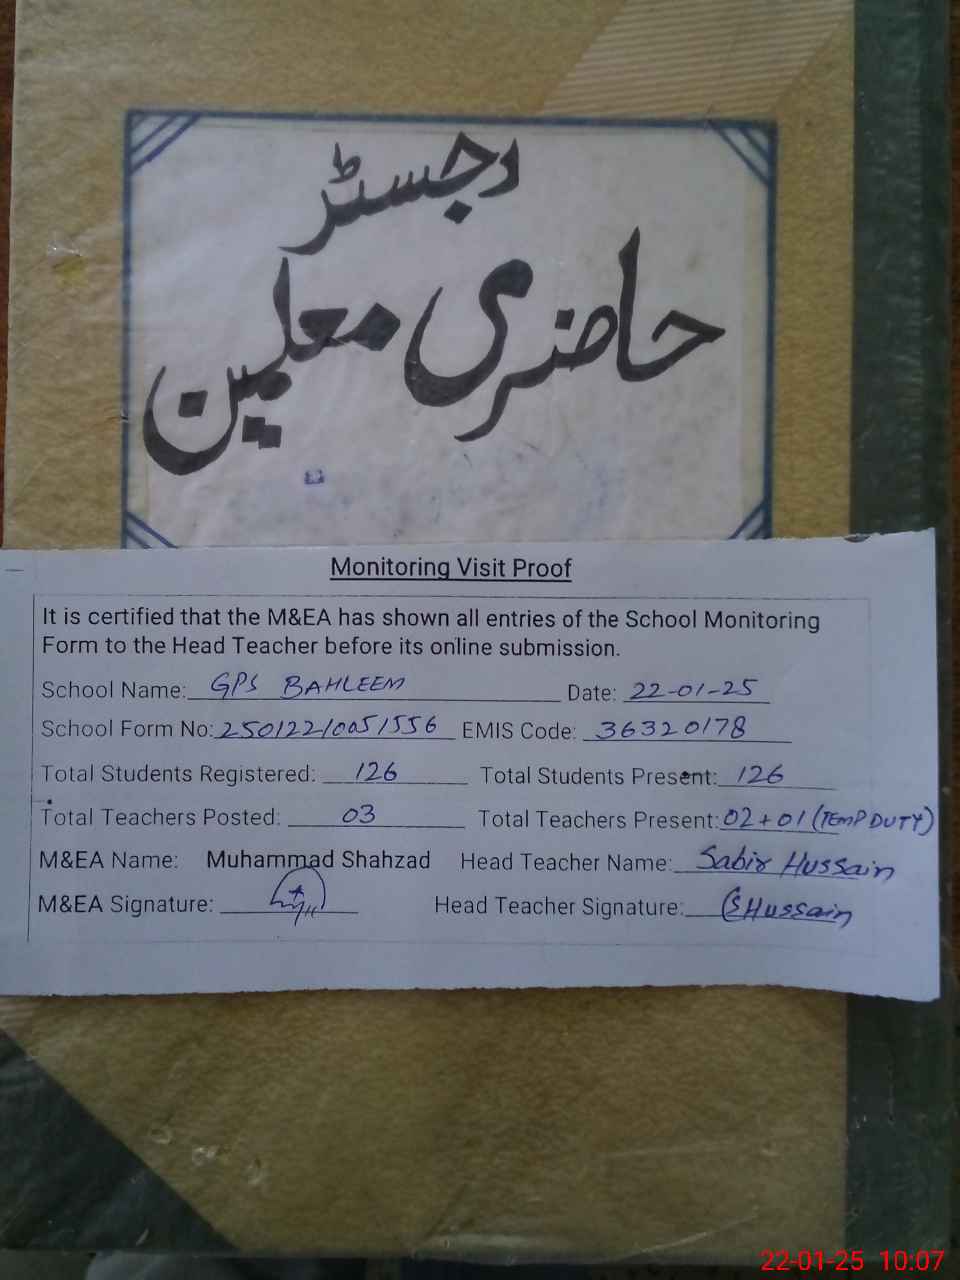 رجسٹر
حاضری معلمین
Monitoring Visit Proof
It is certified that the M&EA has shown all entries of the School Monitoring
Form to the Head Teacher before its online submission.
School Name: GPS BAHLEEM Date: 22-01-25
School Form No: 250122/005/556 EMIS Code: 36320178
Total Students Registered: 126 Total Students Present: 126
Total Teachers Posted: 03 Total Teachers Present: 02+01 (TEMP DUTY)
M&EA Name: Muhammad Shahzad Head Teacher Name: Sabir Hussain
M&EA Signature: Head Teacher Signature: SHussain
22-01-25 10:07